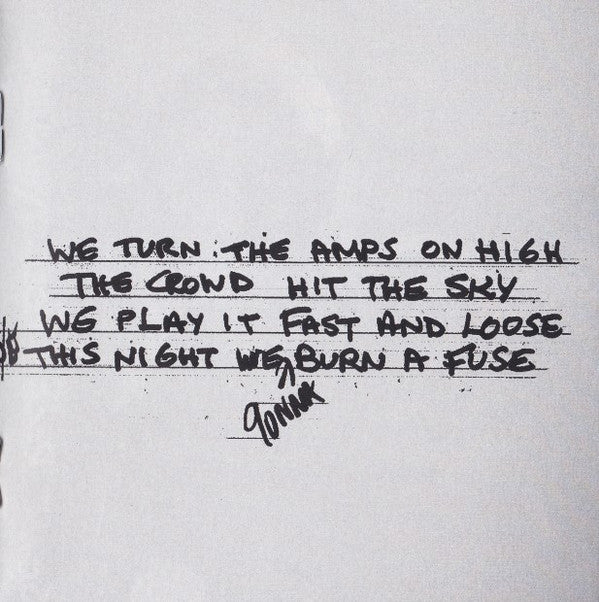 WE TURN THE AMPS ON HIGH
THE CROWD HIT THE SKY
WE PLAY IT FAST AND LOOSE
THIS NIGHT WE GONNA BURN A FUSE